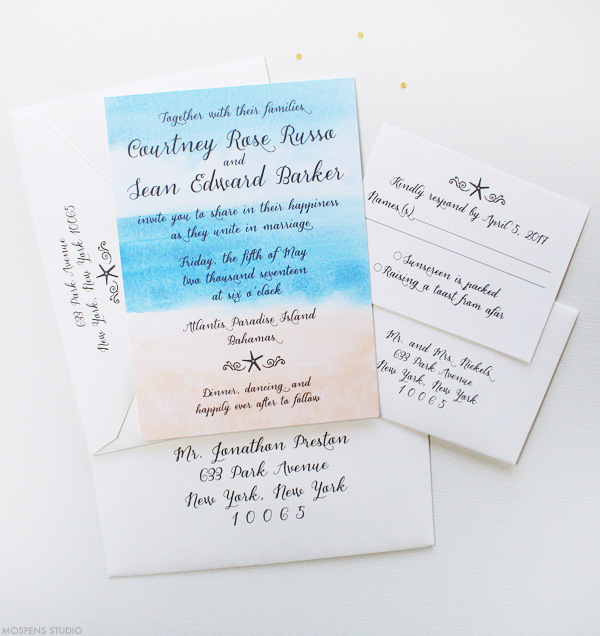 Together with their families
Courtney Rose Russo
and
Sean Edward Barker
invite you to share in their happiness
as they unite in marriage
Friday, the fifth of May
two thousand seventeen
at six o'clock
Atlantis Paradise Island
Bahamas
Dinner, dancing, and
happily ever after to follow
Kindly respond by April 5, 2017
Names(s)
Sunscreen is packed
Raising a toast from afar
Mr. and Mrs. Nickels
633 Park Avenue
New York, New York
10065
633 Park Avenue
New York, New York 10065
Mr. Jonathon Preston
633 Park Avenue
New York, New York
10065
MOSPENS STUDIO